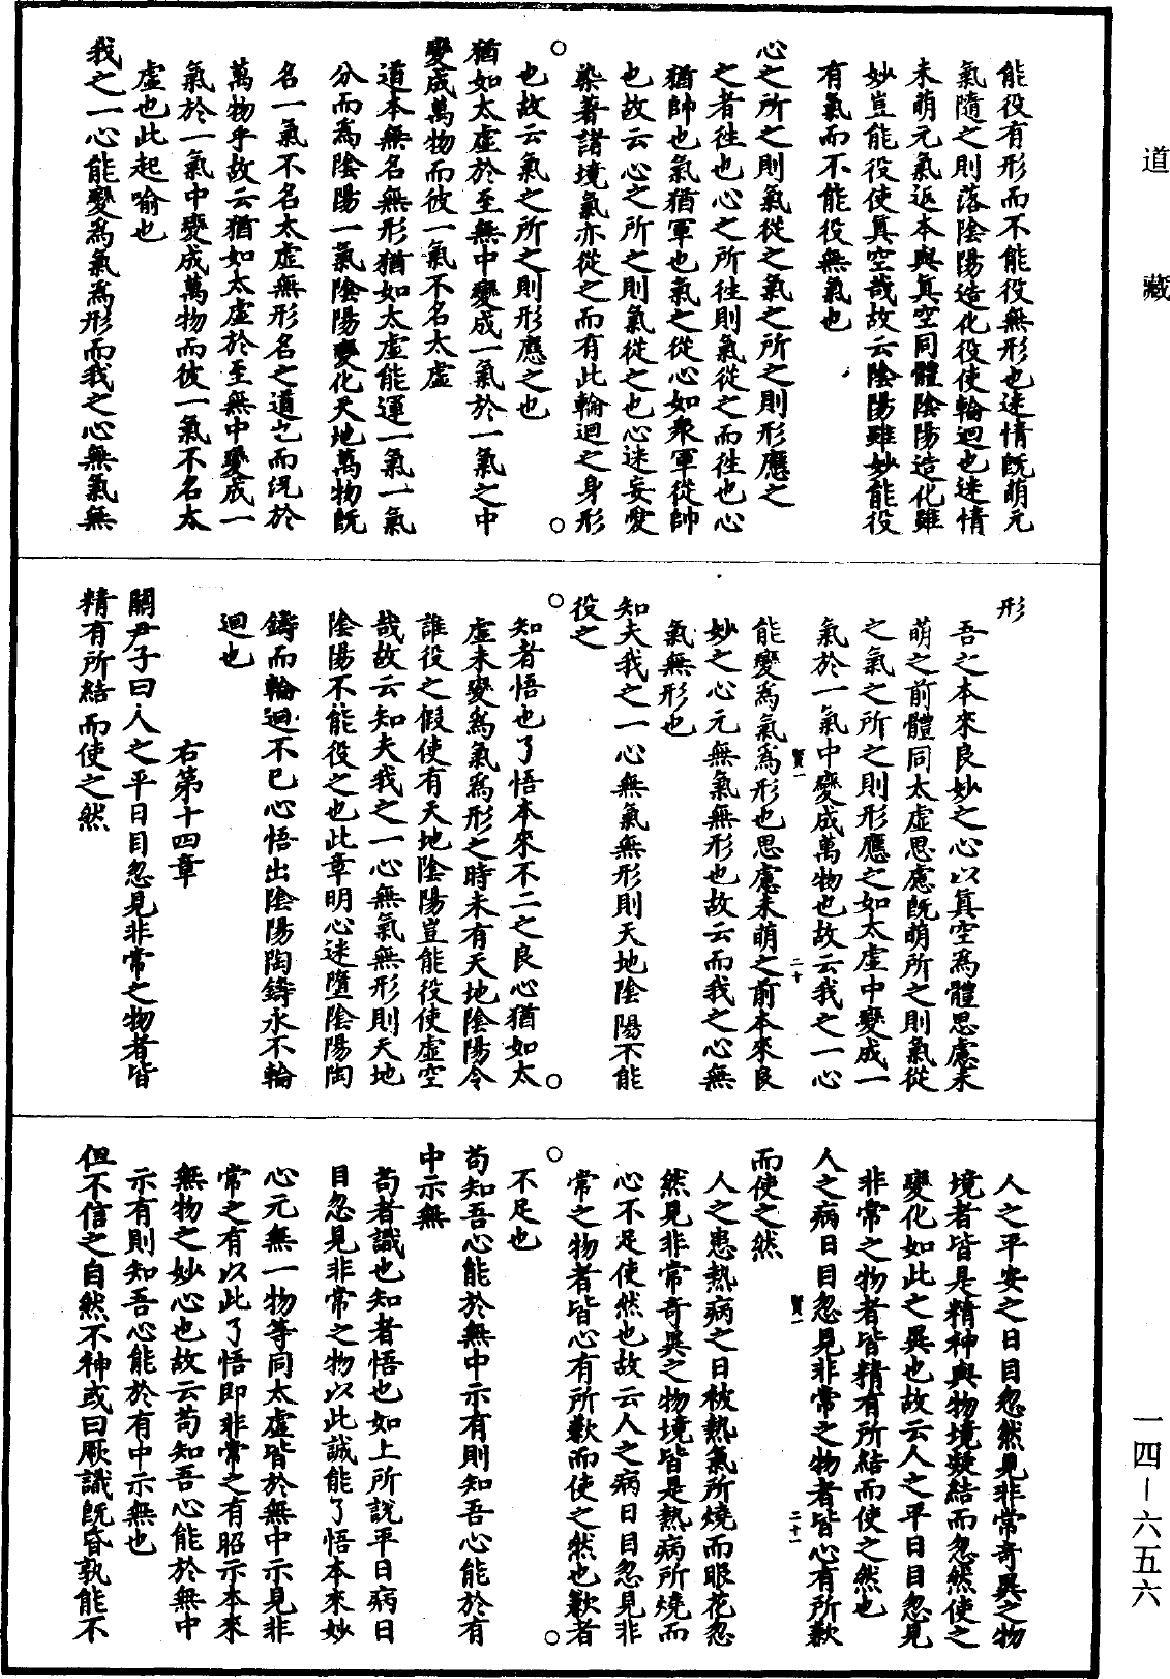 道藏
能役有形而不能役無形也迷情既萌元
氣隨之則落陰陽造化役使輪迴也迷情
未萌元氣返本與真空同體陰陽造化雖
妙豈能役使真空哉故云陰陽雖妙能役
有氣而不能役無氣也
心之所之則氣從之氣之所之則形應之
之者往也心之所往則氣從之而往也心
猶帥也氣猶軍也氣之從心如衆軍從帥
也故云心之所之則氣從之也心迷妄愛
染著諸境氣亦從之而有此輪迴之身形
○也故云氣之所之則形應之也○
猶如太虛於至無中變成一氣於一氣之中
變成萬物而彼一氣不名太虛
道本無名無形猶如太虛能運一氣一氣
分而為陰陽一氣陰陽變化天地萬物既
名一氣不名太虛無形名之道也而況於
萬物乎故云猶如太虛於至無中變成一
氣於一氣中變成萬物而彼一氣不名太
虛也此起喻也
我之一心能變為氣為形而我之心無氣無
形
吾之本來良妙之心以真空為體思慮未
萌之前體同太虛思慮既萌所之則氣從
之氣之所之則形應之如太虛中變成一
氣於一氣中變成萬物也故云我之一心
賢一 二十
能變為氣為形也思慮未萌之前本來良
妙之心元無氣無形也故云而我之心無
氣無形也
知夫我之一心無氣無形則天地陰陽不能
役之
○知者悟也了悟本來不二之良心猶如太○
虛未變為氣為形之時未有天地陰陽令
誰役之假使有天地陰陽豈能役使虛空
哉故云知夫我之一心無氣無形則天地
陰陽不能役之也此章明心迷墮陰陽陶
鑄而輪迴不已心悟出陰陽陶鑄永不輪
迴也
右第十四章
關尹子曰人之平日目忽見非常之物者皆
精有所結而使之然
人之平安之日目忽然見非常奇異之物
境者皆是精神與物境凝結而忽然使之
變化如此之異也故云人之平日目忽見
非常之物者皆精有所結而使之然也
人之病日目忽見非常之物者皆心有所歉
賢一 二十一
而使之然
人之患熱病之日被熱氣所燒而眼花忽
然見非常奇異之物境皆是熱病所燒而
心不足使然也故云人之病日目忽見非
常之物者皆心有所歉而使之然也歉者
○不足也○
苟知吾心能於無中示有則知吾心能於有
中示無
苟者識也知者悟也如上所說平日病日
目忽見非常之物以此誠能了悟本來妙
心元無一物等同太虛皆於無中示見非
常之有以此了悟即非常之有昭示本來
無物之妙心也故云苟知吾心能於無中
示有則知吾心能於有中示無也
但不信之自然不神或曰厥識既昏孰能不
一四－六五六